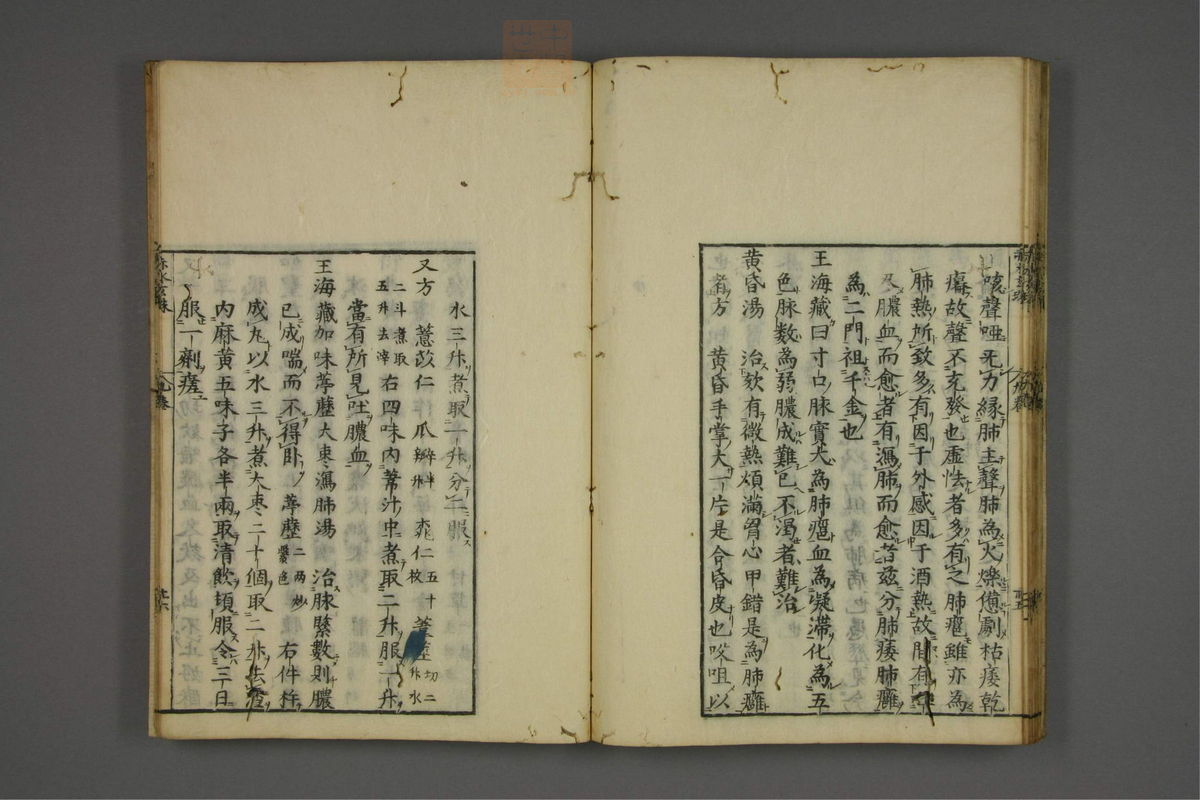 咳聲啞无力縁肺主聲肺為火爍憊劇枯痿乾
癟故聲不充發也虛怯者多有之肺癰雖亦為
肺熱所致多有因于外感因于酒熱故間有
膿血而愈者有瀉肺而愈者玆分肺痿肺癰
為二門祖千金也
王海藏曰寸口脉實大為肺癰血為凝滯化為五
色脉數為弱膿成難已不渴者難治
黄昏湯 治欬有微熱煩滿胷心甲錯是為肺癰
者方 黄昏手掌大一片是合昏皮也㕮咀以
水三升煮取一升分二服
又方 薏苡仁 瓜瓣 半升 桃仁 五十枚 葦莖 切二升水
二斗煮取五升去滓 右四味内葦汁中煮取二升服一升
當有所見吐膿血
王海藏加味葶藶大棗瀉肺湯 治脉緊數則膿
已成喘而不得卧 葶藶 二兩炒紫色 右件杵
成丸以水三升煮大棗二十個取二升去渣
内麻黄五味子各半兩取清飲頓服令三日
服一劑瘥